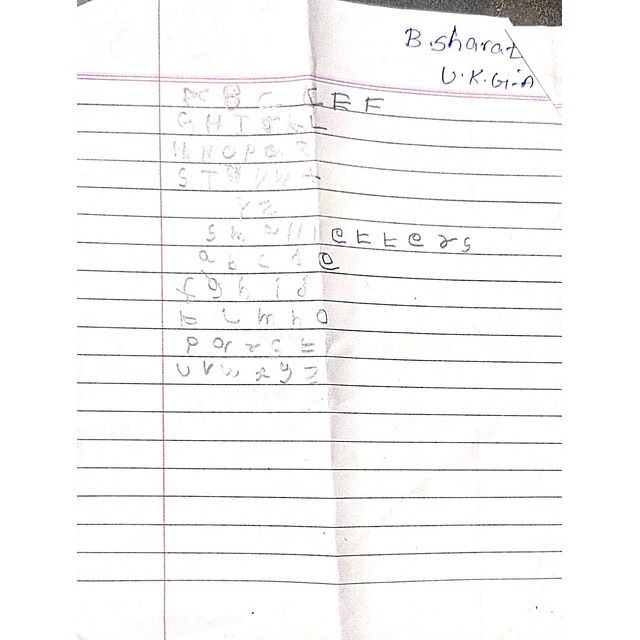 B. sharat
U.K.G-A
A B C D E F
G H I J K L
M N O P Q R
S T U V W X
Y Z
small letters
a b c d e
f g h i j
k l m n o
p q r s t
u v w x y z